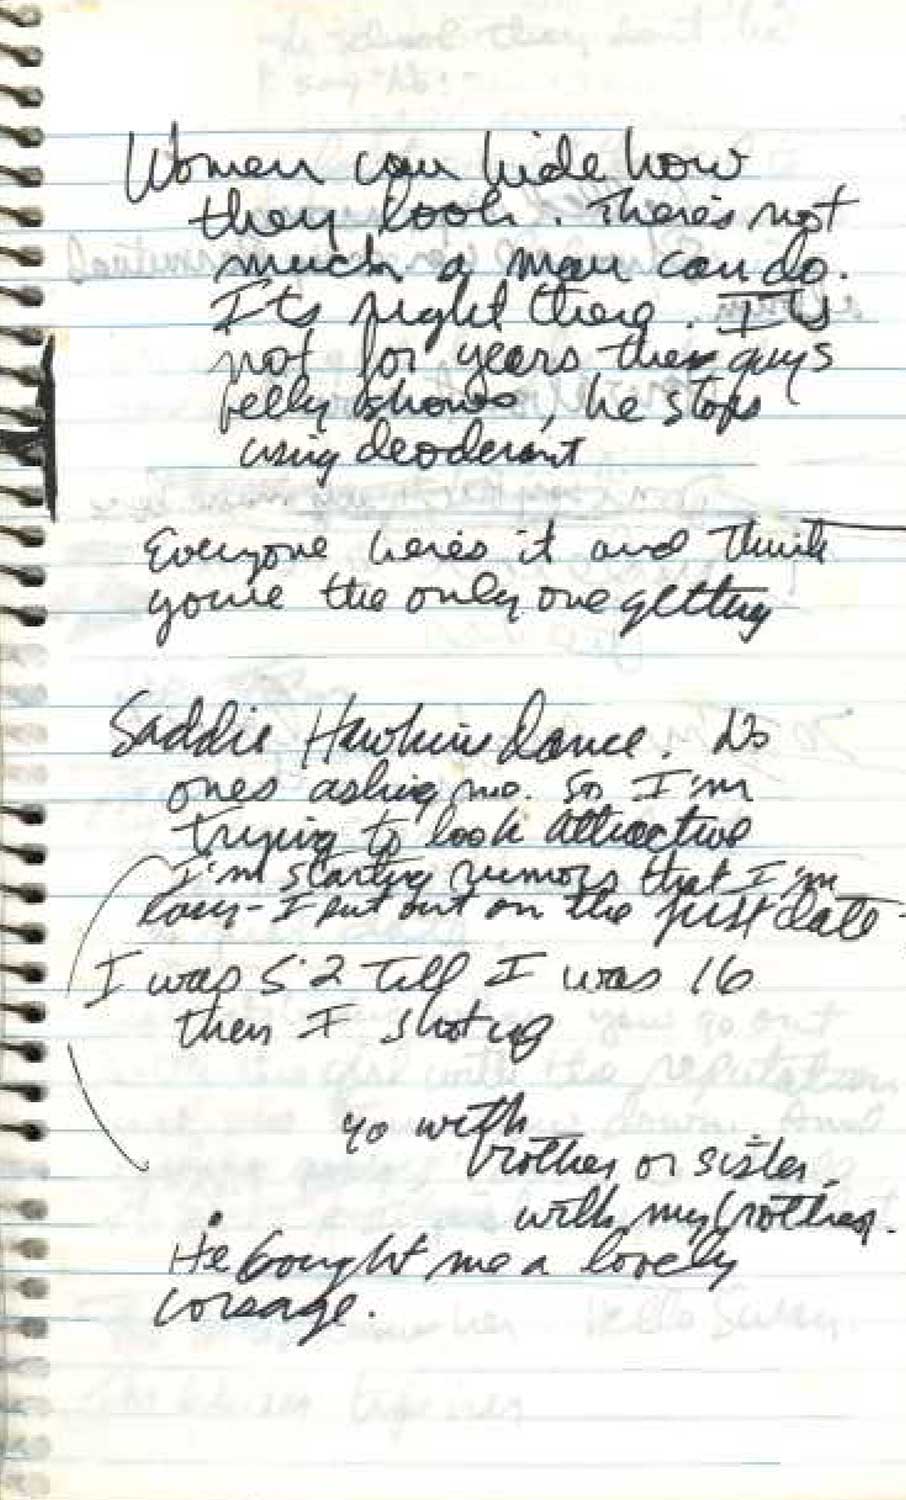 Women can hide how
they look. There's not
much a man can do.
It's right there. It's
not for years then guys
belly shows, he stops
using deoderant
Everyone here's it and think
you're the only one getting
Saddie Hawkins dance. No
ones asking me. So I'm
trying to look attractive
I'm starting rumors that I'm
easy - I put out on the first date
I was 5'2 till I was 16
then I shot up
go with
brother or sister
with my brother.
He bought me a lovely
corsage.